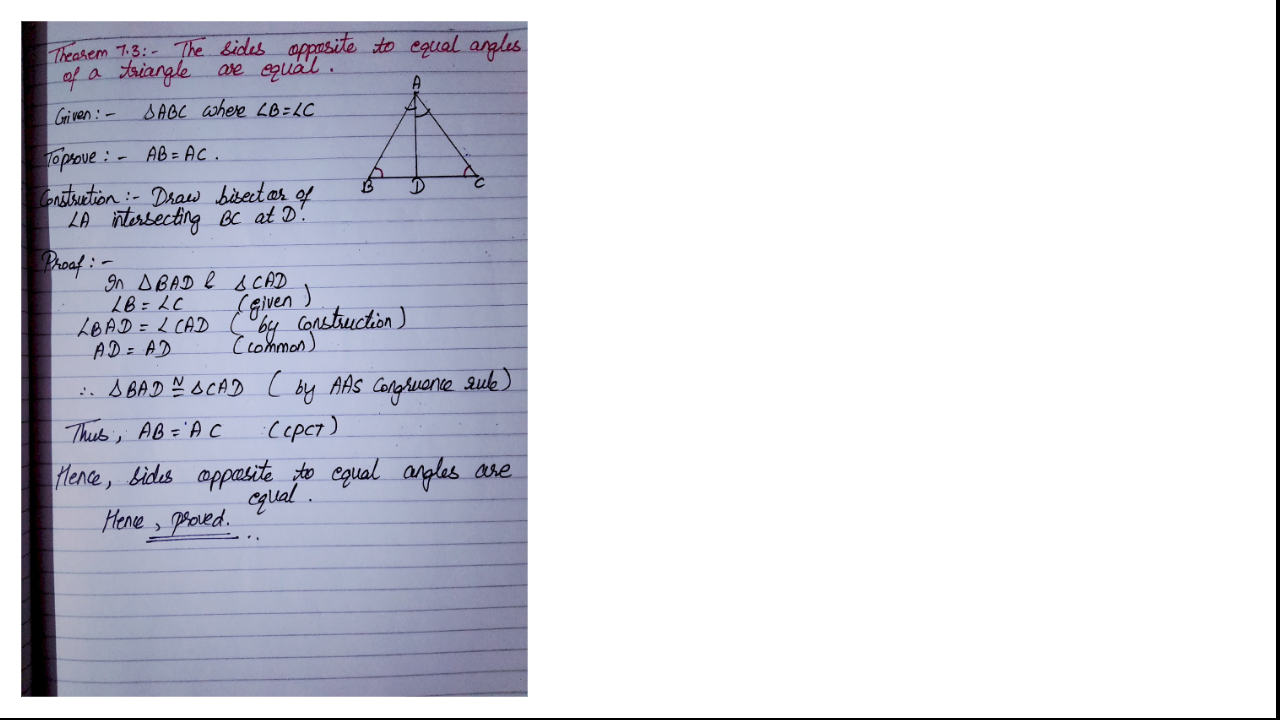 Theorem 7.3:- The sides opposite to equal angles
of a triangle are equal.
Given:- ΔABC where ∠B=∠C
To prove:- AB=AC.
Construction:- Draw bisector of
∠A intersecting BC at D.
A
B D C
Proof:-
In ΔBAD & ΔCAD
∠B=∠C (given)
∠BAD=∠CAD (by construction)
AD=AD (common)
∴ ΔBAD ≅ ΔCAD (by AAS congruence rule)
Thus, AB=AC (CPCT)
Hence, sides opposite to equal angles are
equal.
Hence, proved.